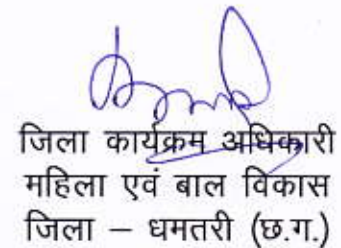 जिला कार्यक्रम अधिकारी
महिला एवं बाल विकास
जिला – धमतरी (छ.ग.)